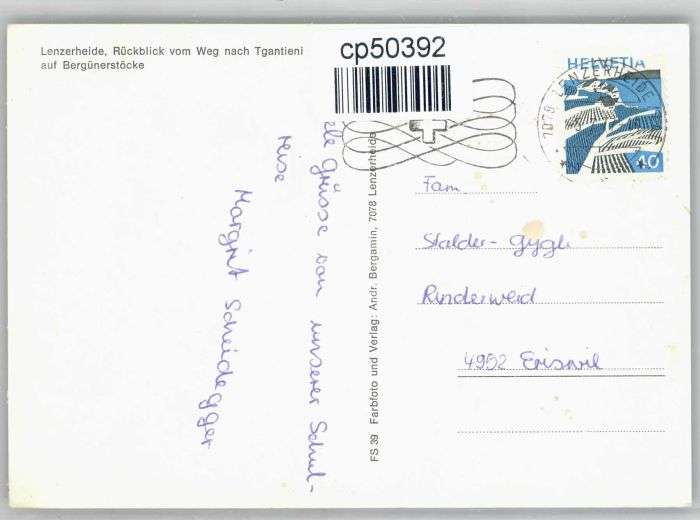 Lenzerheide, Rückblick vom Weg nach Tgantieni
auf Bergünerstöcke
cp50392
HELVETIA
40
7078 LENZERHEIDE
FS 39 Farbfoto und Verlag: Andr. Bergamin, 7078 Lenzerheide
Grüsse von unserer Schul-
reise
Margrit Scheidegger
Fam
Stalder-Gygli
Rinderweid
4952 Eriswil